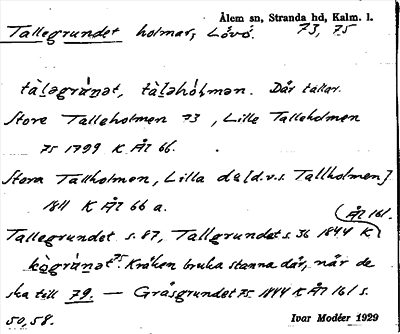 Ålem sn, Stranda hd, Kalm. l.
Tallegrundet holmar, Lövö. 73, 75
tàḷəgrúnət, tàḷəhól̥mən. Där tallar.
Store Talleholmen 73, Lille Talleholmen
75 1799 K Ål 66.
Stora Tallholmen, Lilla do [d.v.s. Tallholmen].
1811 K Ål 66 a.
Tallegrundet s. 87, Tallgrundet s. 36 1844 K
Ål 161.
kògrúnət 75. Kråken bruka stanna där, når de
ska till 79. — Gråsgrundet 75 1844 K Ål 161 s.
50, 58.
Ivar Modéer 1929